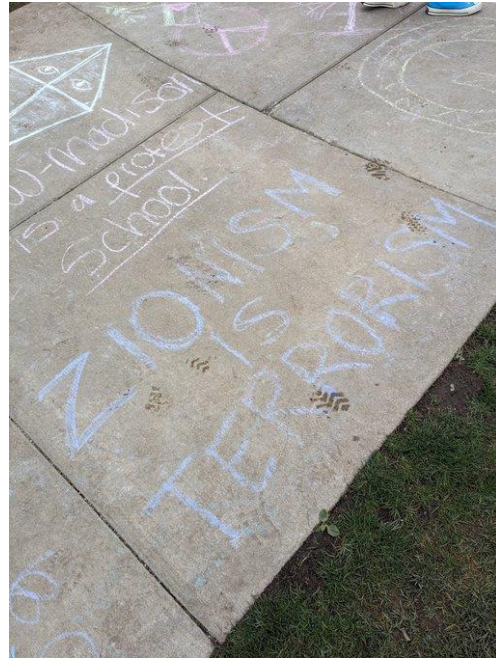 W-Madison
is a protest
School
ZIONISM
IS
TERRORISM